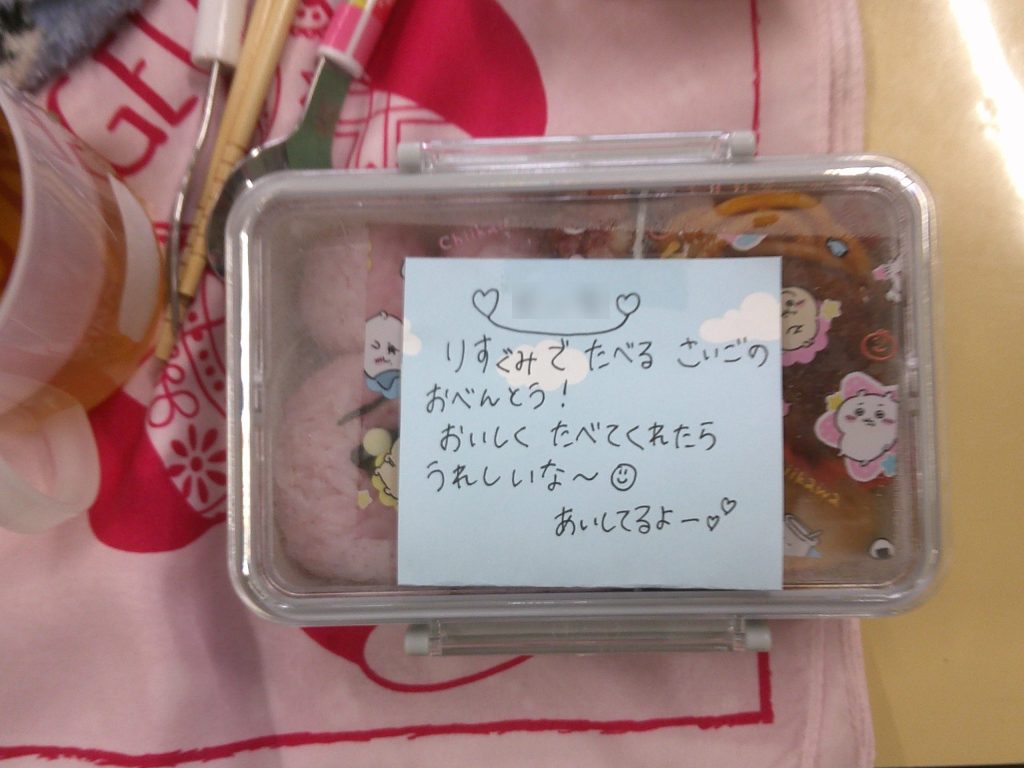 Chiikawa
りすぐみで たべる さいごの
おべんとう!
おいしく たべてくれたら
うれしいな〜☺
あいしてるよー♡♡